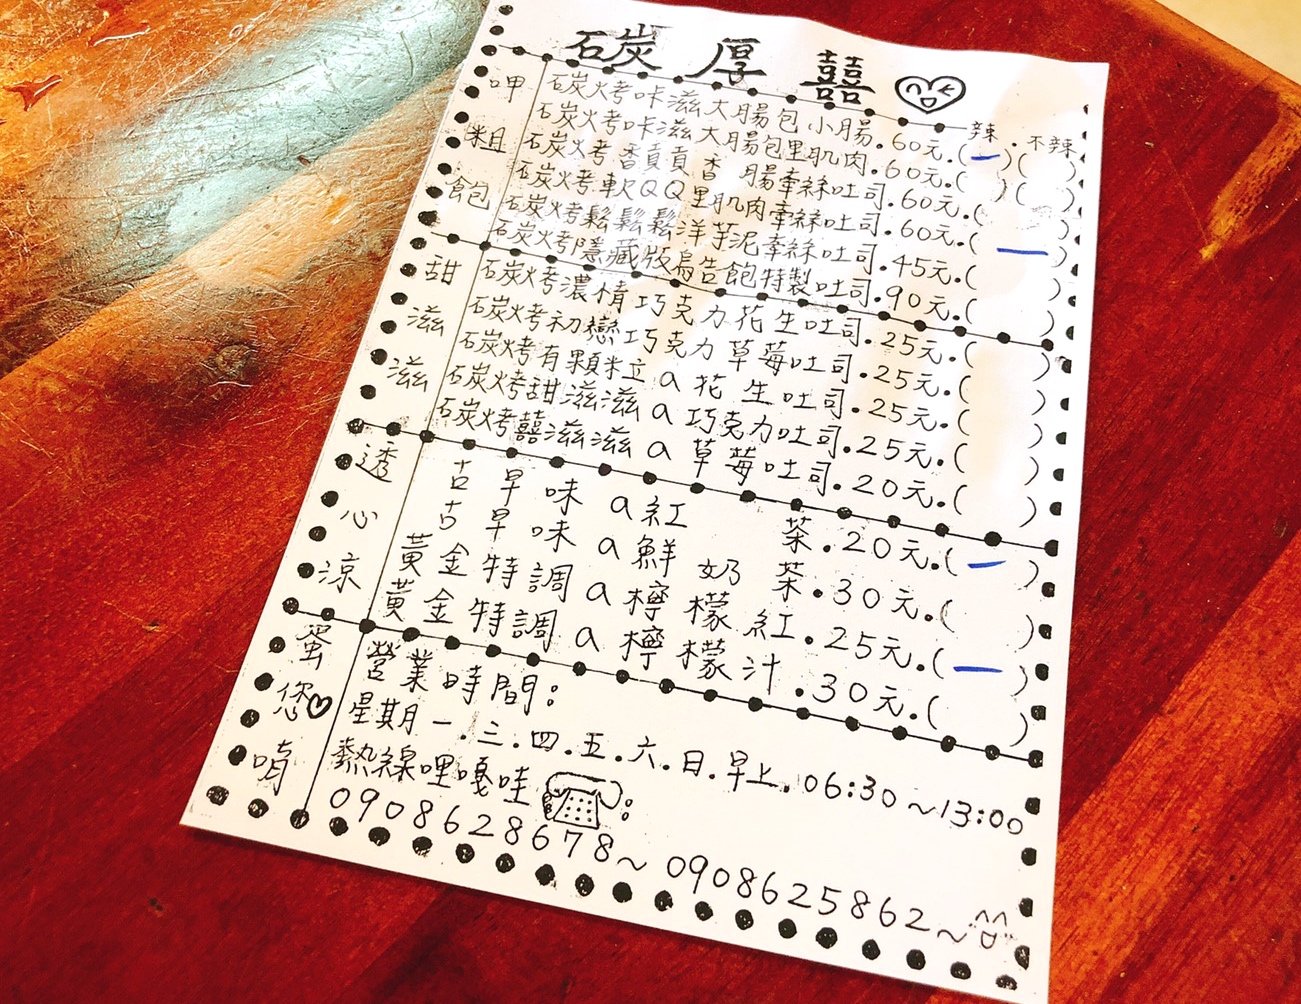 碳厚囍
辣.不辣
呷粗飽
碳烤咔滋大腸包小腸.60元.( )( )
碳烤咔滋大腸包里肌肉.60元.( )( )
碳烤香貢貢香腸牽絲吐司.60元.( )
碳烤軟QQ里肌肉牽絲吐司.60元.( )
碳烤鬆鬆鬆洋芋泥牽絲吐司.45元.( )
碳烤隱藏版烏告飽特製吐司.90元.( )
甜滋滋
碳烤濃情巧克力花生吐司.25元.( )
碳烤初戀巧克力草莓吐司.25元.( )
碳烤有顆粒a花生吐司.25元.( )
碳烤甜滋滋a巧克力吐司.25元.( )
碳烤囍滋滋a草莓吐司.20元.( )
透心涼
古早味a紅茶.20元.( )
古早味a鮮奶茶.30元.( )
黃金特調a檸檬紅.25元.( )
黃金特調a檸檬汁.30元.( )
蛋您唷
營業時間:
星期一.三.四.五.六.日.早上.06:30~13:00
熱線哩嘎哇:
0908628678~0908625862~